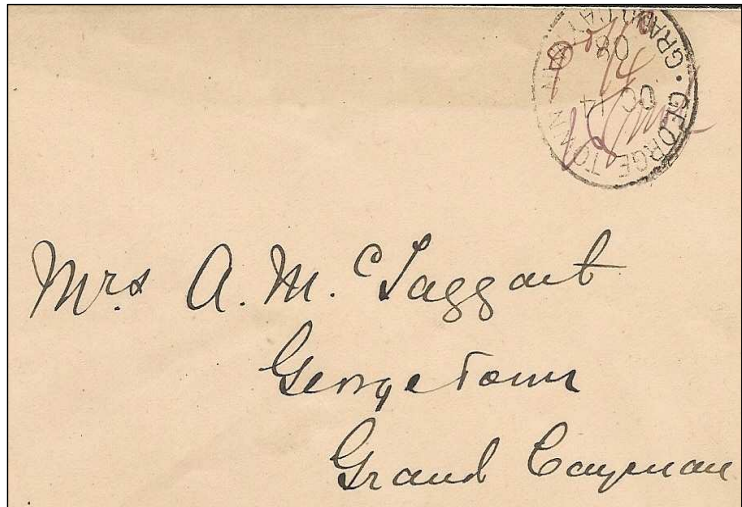 GEORGE TOWN · GRAND CAYMAN ·
OC 14
08
Mrs A. McTaggart
Georgetown
Grand Cayman